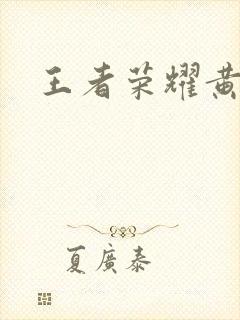 王者荣耀黄
夏廣泰